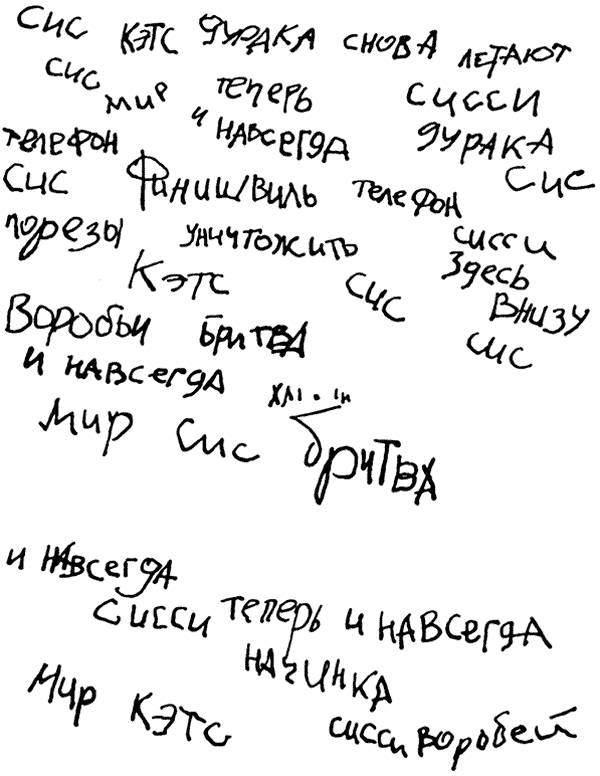 сис кэтс дурака снова летают
сис мир теперь сисси
телефон и навсегда дурака
сис Финишвиль телефон сис
порезы уничтожить сисси
Кэтс сис здесь
Воробьи бритва внизу
и навсегда сис
мир сис бритва
и навсегда
сисси теперь и навсегда
начинка
мир кэтс сисси воробей